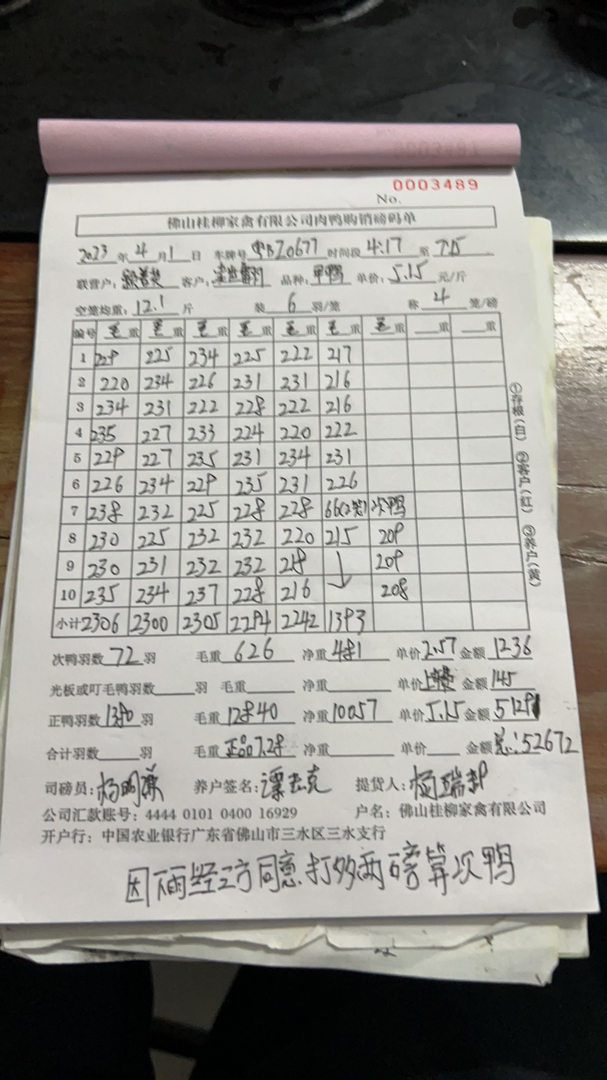 0003489
No.
佛山桂柳家禽有限公司肉鸭购销磅码单
2023年4月1日 车牌号 Z0677 时间段 4:17 至 7:15
联营户: 客户: 品种:甲鸭 单价:5.15元/斤
空笼均重:12.1斤 装6羽/笼 称4笼/磅
编号 毛重 毛重 毛重 毛重 毛重 毛重 毛重 重 重
1 229 225 234 225 222 217
2 220 234 226 231 231 216
3 234 231 222 228 222 216
4 235 227 233 224 220 222
5 229 227 235 231 234 231
6 226 234 229 235 231 226
7 238 232 225 228 228 66(2笼) 次鸭
8 230 225 232 232 220 215 209
9 230 231 232 232 218 209
10 235 234 237 228 216 208
小计 2306 2300 2305 2294 2242 1393
次鸭羽数72羽 毛重626 净重481 单价2.57 金额1236
光板或叮毛鸭羽数 羽 毛重 净重 单价 金额145
正鸭羽数1380羽 毛重12840 净重10057 单价5.15 金额51291
合计羽数 羽 毛重正品7.28 净重 单价 金额总:52672
司磅员: 养户签名:谭志克 提货人:
公司汇款账号:4444 0101 0400 16929 户名:佛山桂柳家禽有限公司
开户行:中国农业银行广东省佛山市三水区三水支行
因下雨经三方同意打多两磅算次鸭
①存根(白) ②客户(红) ③养户(黄)